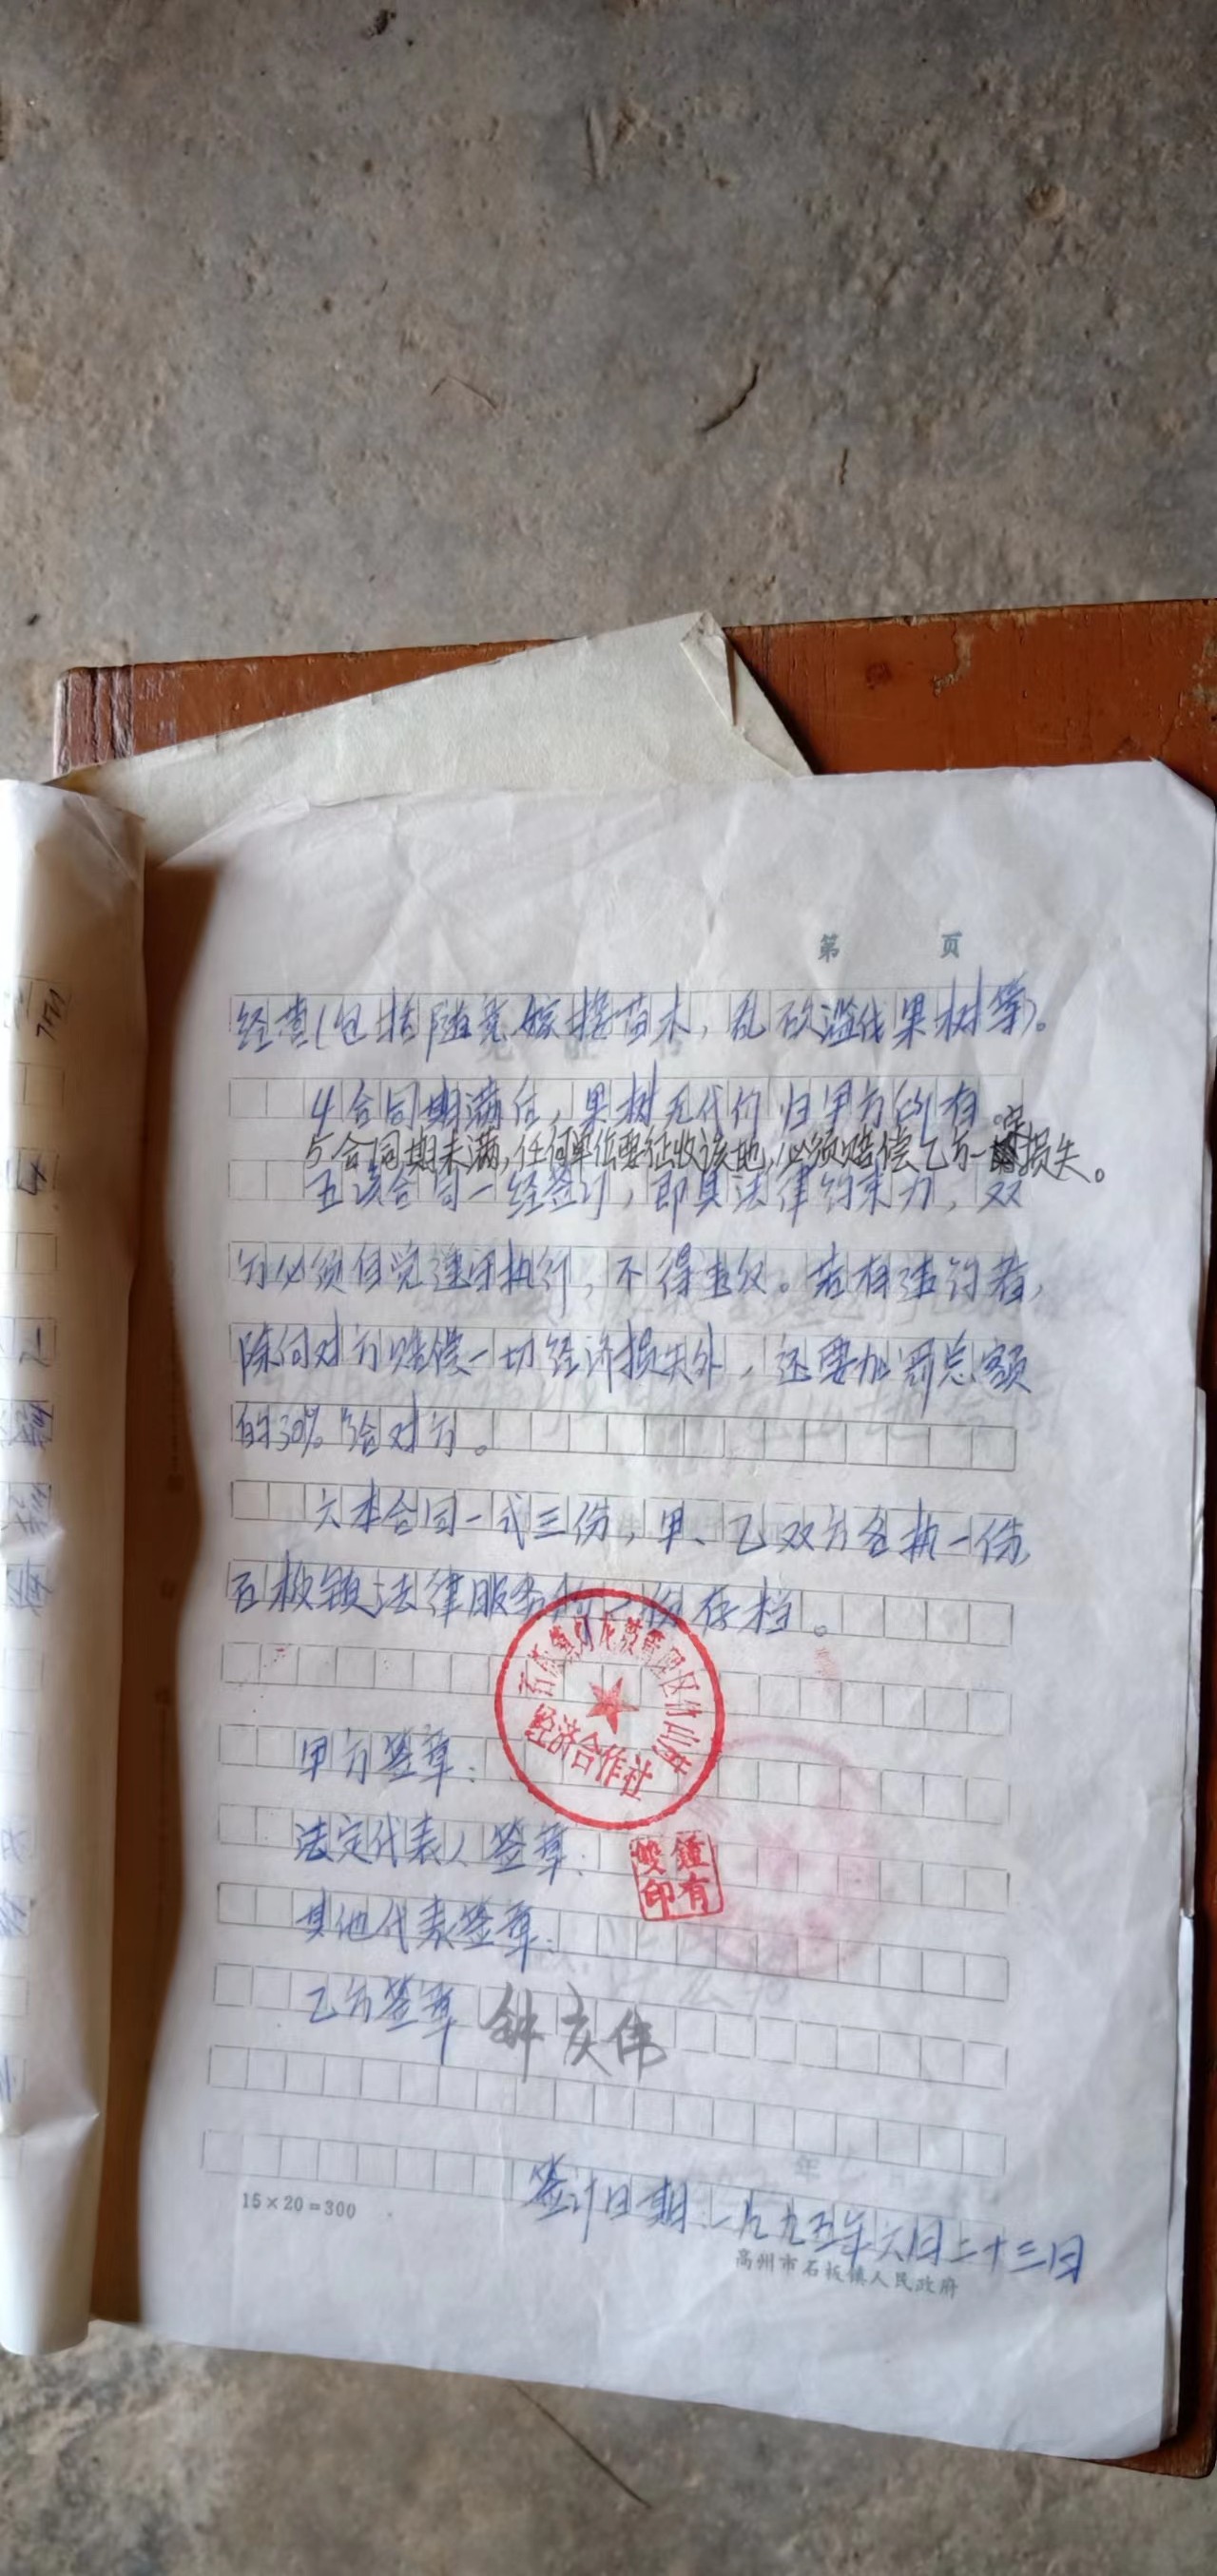 第 页
经营(包括随意嫁接苗木,乱砍滥伐果树等)。
4合同期满后,果树无代价归甲方所有。
5合同期未满,任何单位要征收该地,必须赔偿乙方一定损失。
五该合同一经签订,即具法律约束力,双
方必须自觉遵守执行,不得违反。若有违约者,
除向对方赔偿一切经济损失外,还要加罚总额
的30%给对方。
六本合同一式三份,甲、乙双方各执一份,
石板镇法律服务所一份存档。
石板镇
管理区
经济合作社
甲方签章:
法定代表人签章:
鍾有
印
其他代表签章:
乙方签章 钟庆伟
年
签订日期:一九九五年六月二十三日
15×20=300
高州市石板镇人民政府